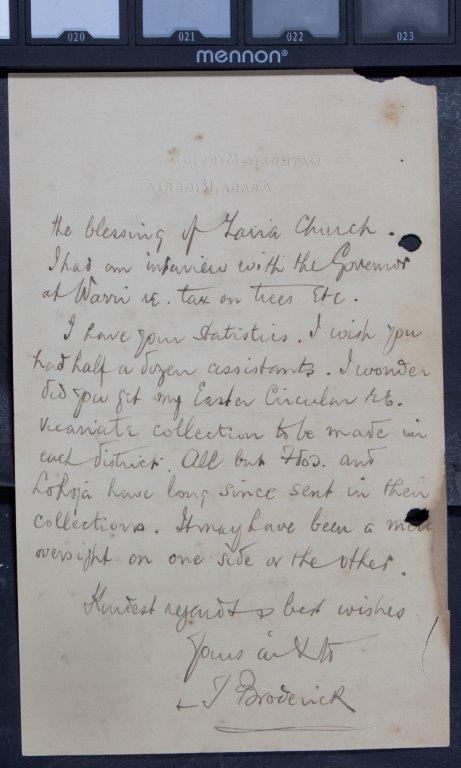 020 021 022 023
mennon®
CATHOLIC MISSION,
ASABA, NIGERIA.
the blessing of Zaria Church.
I had an interview with the Governor
at Warri re. tax on trees Etc.
I have your statistics. I wish you
had half a dozen assistants. I wonder
did you get my Easter Circular re.
vicariate collection to be made in
each district. All but and
Lokoja have long since sent in their
collections. It may have been a mere
oversight on one side or the other.
Kindest regards & best wishes
Yours in
T Broderick